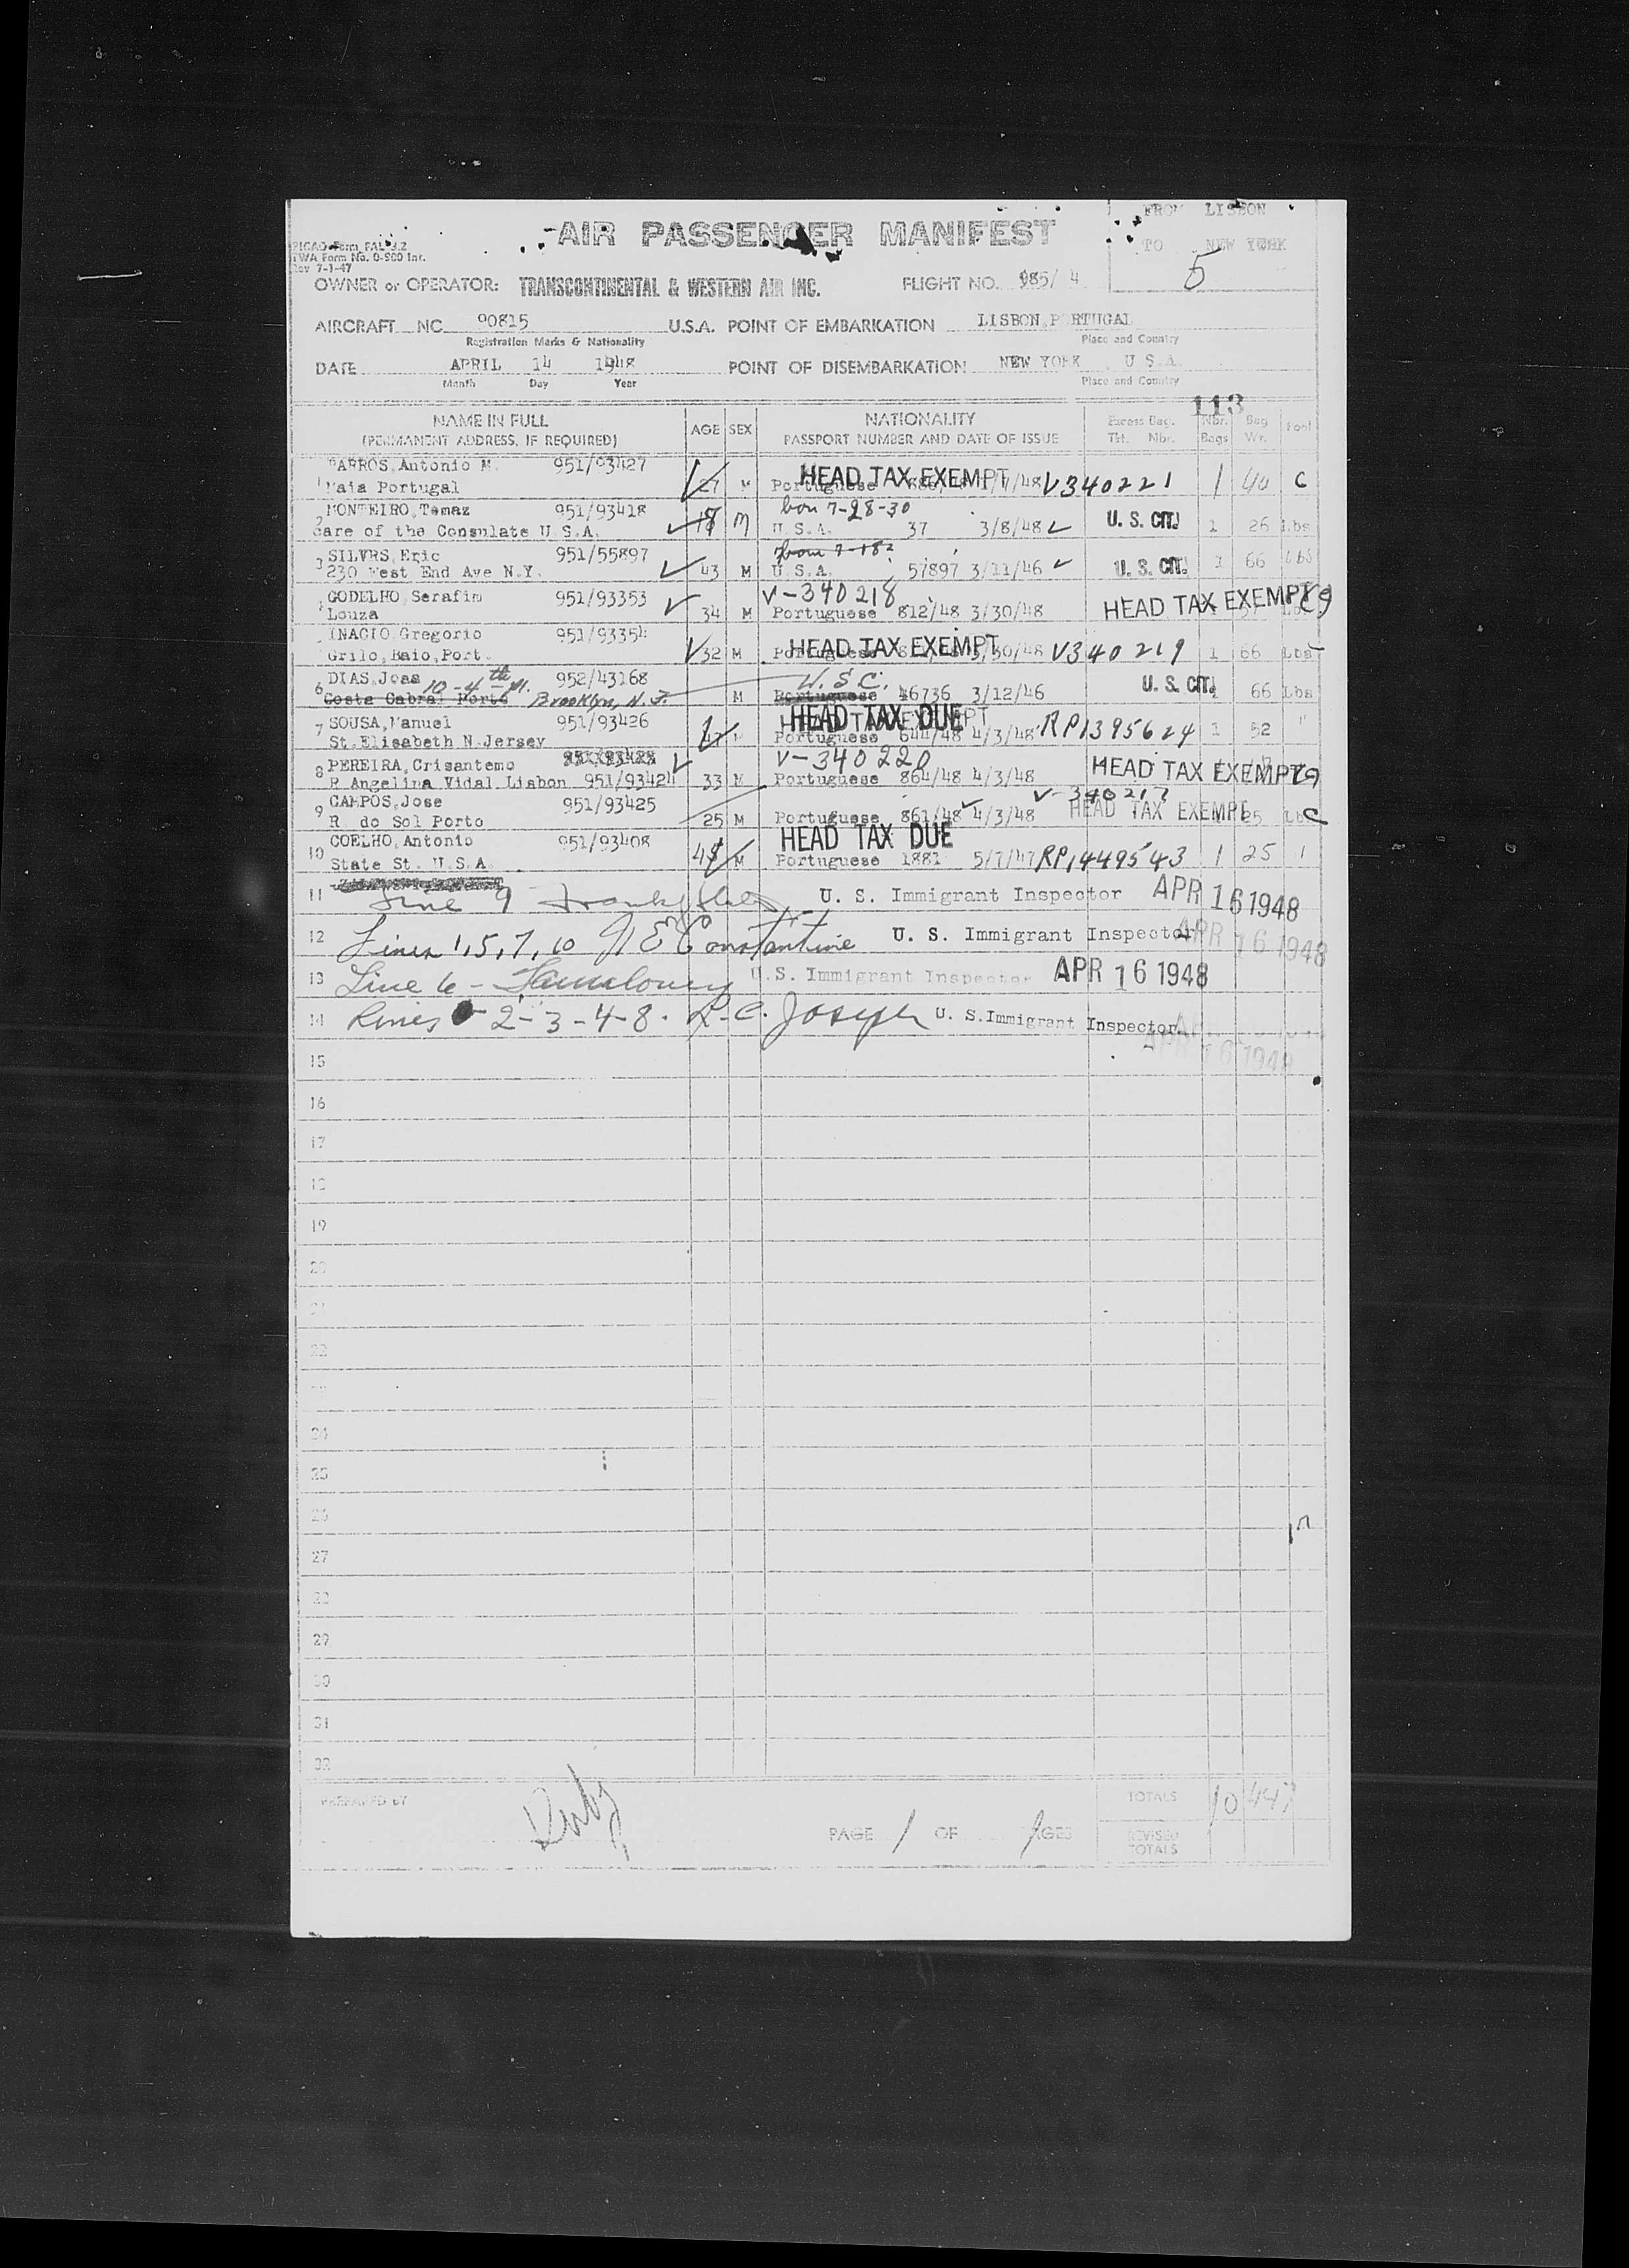 FROM LISBON
AIR PASSENGER MANIFEST
TO NEW YORK
5
PICAO Form FAL 3.2
TWA Form No. 0-900 Int.
Rev 7-1-47
OWNER or OPERATOR: TRANSCONTINENTAL & WESTERN AIR INC. FLIGHT NO. 985/ 4
AIRCRAFT NC 90815 U.S.A. POINT OF EMBARKATION LISBON, PORTUGAL
Registration Marks & Nationality Place and Country
DATE APRIL 14 1948 POINT OF DISEMBARKATION NEW YORK U.S.A.
Month Day Year Place and Country
113
NAME IN FULL AGE SEX NATIONALITY Excess Bag. Nbr. Bag
(PERMANENT ADDRESS, IF REQUIRED) PASSPORT NUMBER AND DATE OF ISSUE Tkt. Nbr. Bags Wt.
1 BARROS, Antonio M. 951/93427 HEAD TAX EXEMPT
Maia Portugal 27 M Portuguese V340221 1 40 C
2 MONTEIRO, Tomaz 951/93418 born 7-28-30
Care of the Consulate U.S.A. M U.S.A. 37 3/8/48 U. S. CIT. 1 26 Lbs
3 SILVRS, Eric 951/55897
230 West End Ave N.Y. 43 M U.S.A. 57897 3/11/46 U. S. CIT. 66 Lbs
GODELHO, Serafim 951/93353 V-340218
Louza 34 M Portuguese 812/48 3/30/48 HEAD TAX EXEMPT
INACIO Gregorio 951/93354 HEAD TAX EXEMPT
Grilo, Baio, Port. 32 M V340219 1 66 Lbs
6 DIAS, Joao 952/43168 U.S.C.
Costa Cabral Porto 10-4th Pl. Brooklyn, N.J. M Portuguese 46736 3/12/46 U. S. CIT. 66 Lbs
7 SOUSA, Manuel 951/93426 HEAD TAX DUE
St. Elisabeth N.Jersey M Portuguese 644/48 4/3/48 RP1395624 1 52 "
8 PEREIRA, Crisantemo V-340220
R Angelina Vidal Lisbon 951/93424 33 M Portuguese 864/48 4/3/48 HEAD TAX EXEMPT
9 CAMPOS, Jose 951/93425 V-340217
R. do Sol Porto 25 M Portuguese 861/48 4/3/48 HEAD TAX EXEMPT 25 Lbs C
10 COELHO, Antonio 951/93408 HEAD TAX DUE
State St. U.S.A. M Portuguese 1881 5/7/47 RP1449543 1 25
11 Line 9 U. S. Immigrant Inspector APR 16 1948
12 Lines 1,5,7,10 J E Constantine U. S. Immigrant Inspector APR 16 1948
13 Line 6 - U.S. Immigrant Inspector APR 16 1948
14 Lines 2-3-4-8. L.C. Joseph U. S. Immigrant Inspector
APR 16 1948
15
16
17
18
19
20
21
22
24
25
26
27
28
29
30
31
32
PREPARED BY TOTALS 10 447
PAGE 1 OF PAGES REVISED
TOTALS